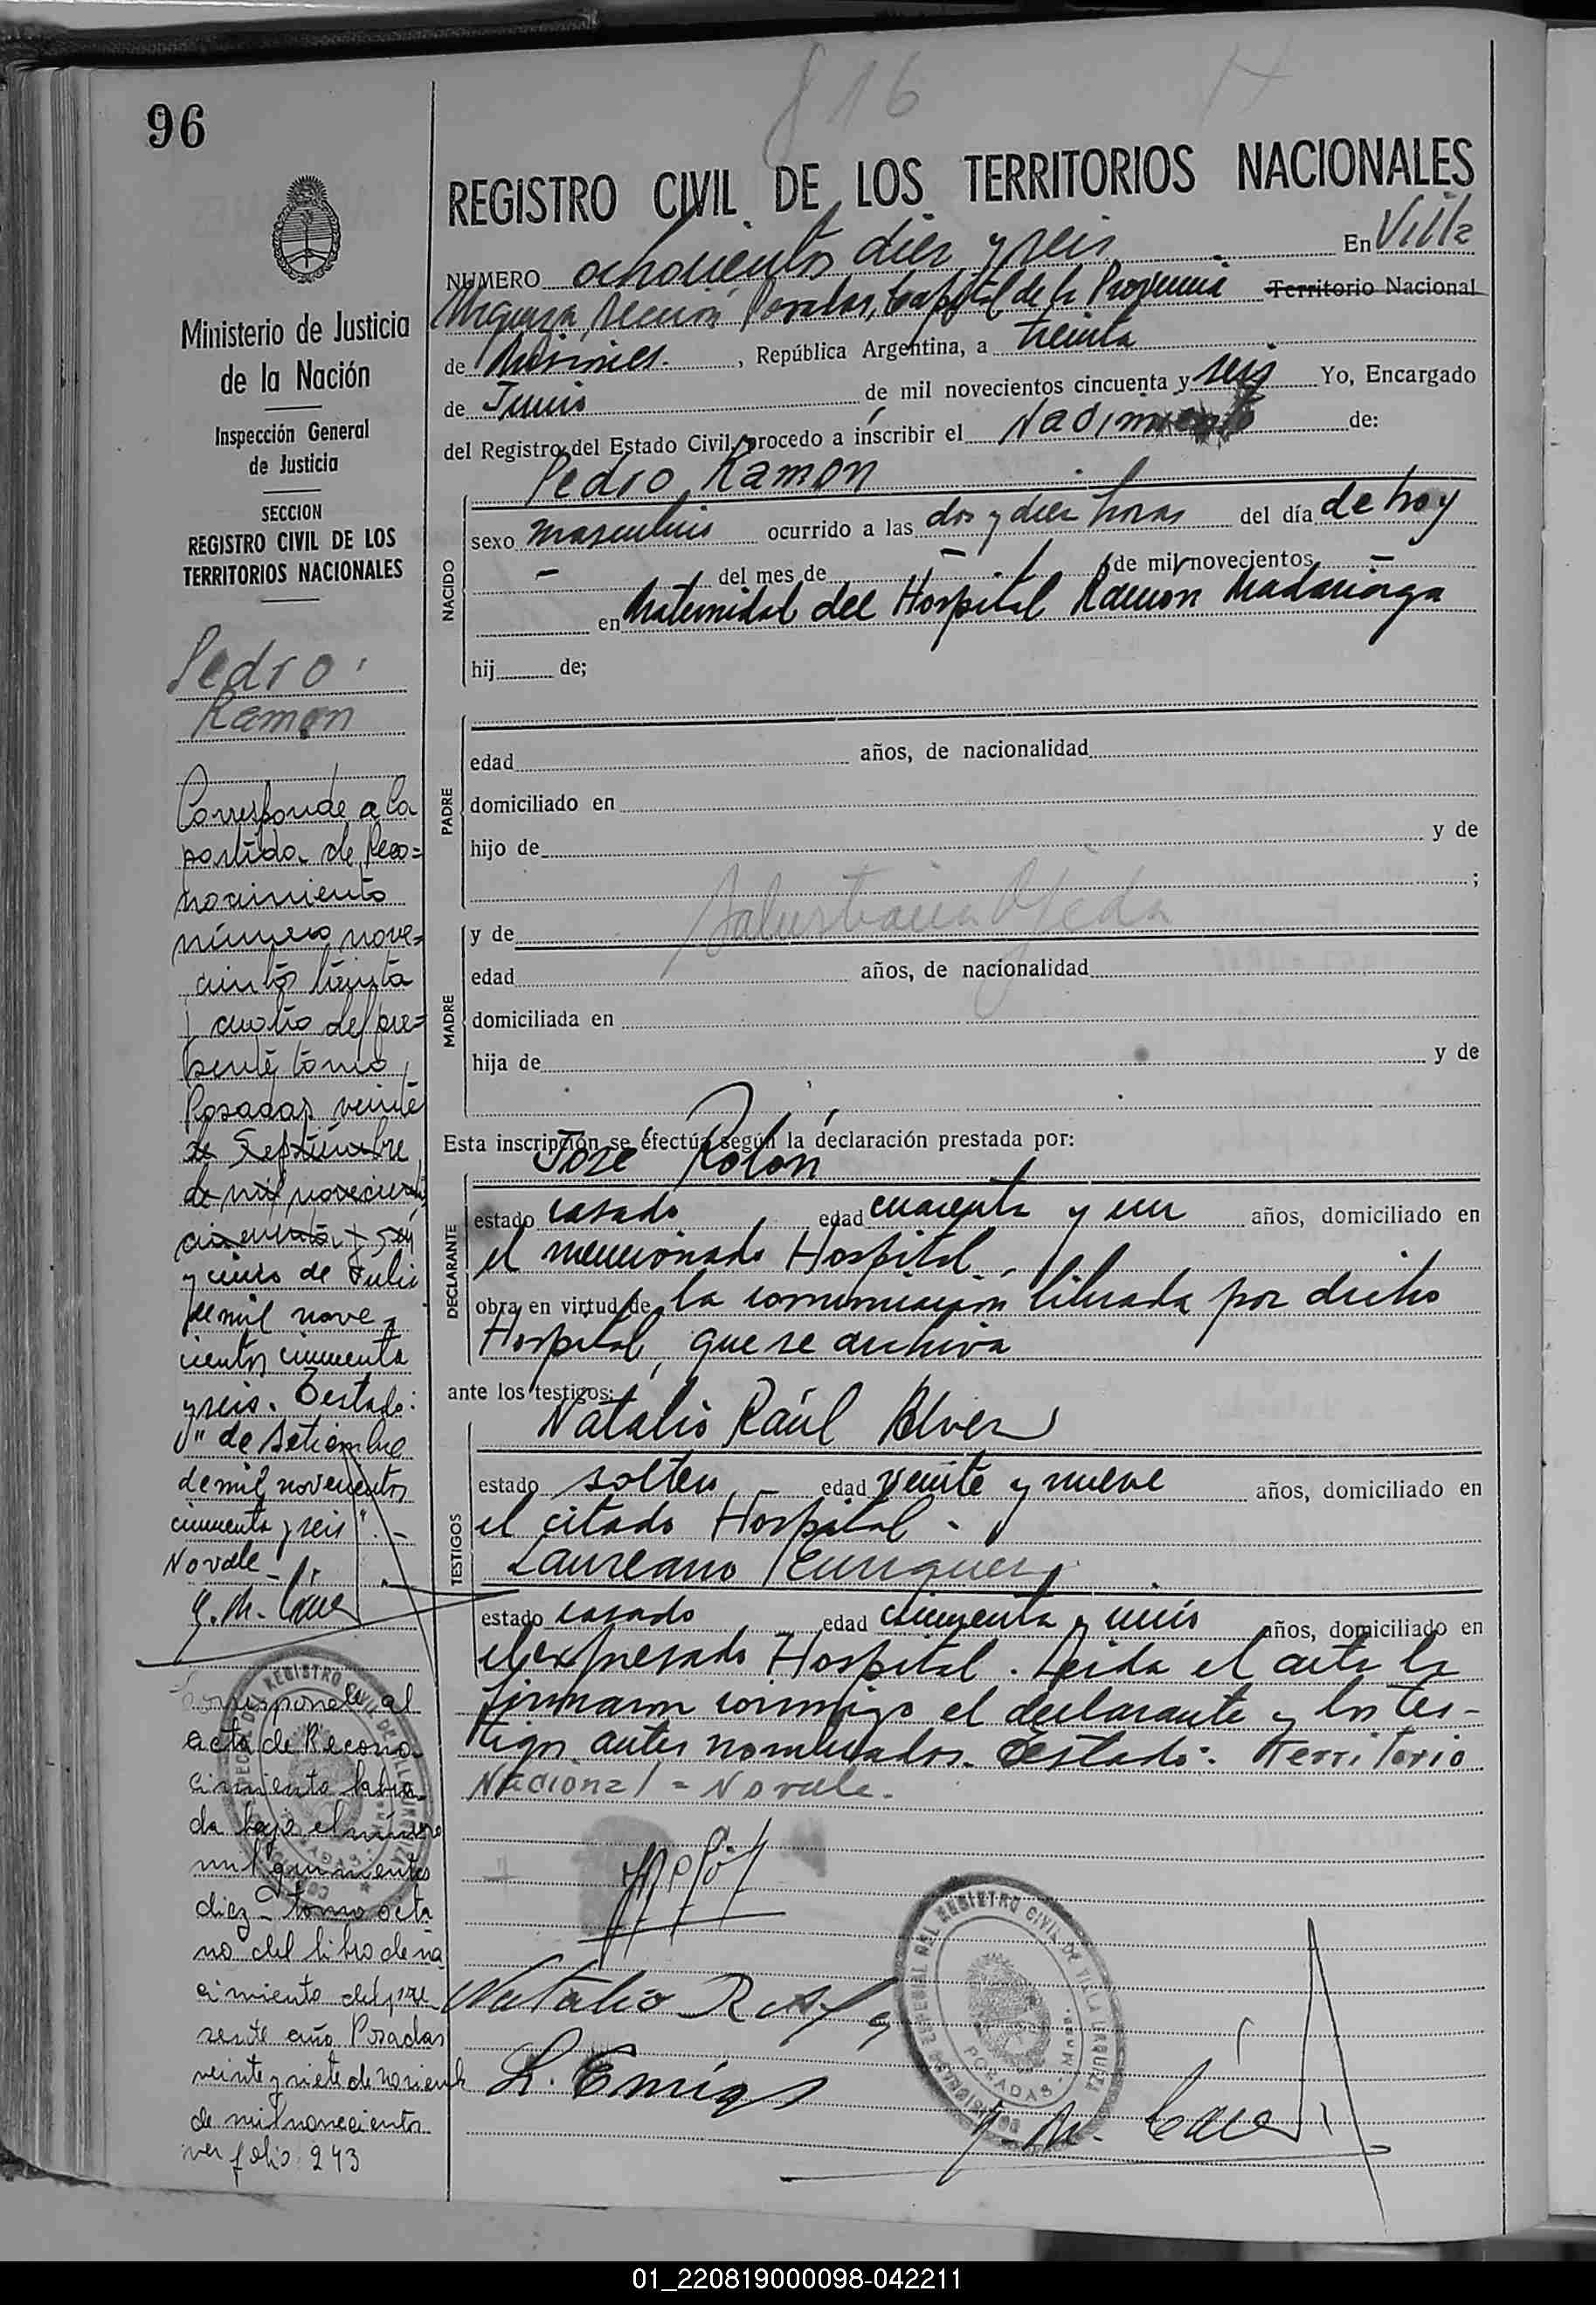 816
96
REGISTRO CIVIL DE LOS TERRITORIOS NACIONALES
NUMERO ochocientos diez y seis En Villa
Urquiza, Sección Posadas, Capital de la Provincia Territorio Nacional
de Misiones. , República Argentina, a treinta
de Junio de mil novecientos cincuenta y seis Yo, Encargado
del Registro del Estado Civil, procedo a inscribir el Nacimiento de:
Pedro Ramon
NACIDO
sexo masculino ocurrido a las dos y diez horas del día de hoy
— del mes de — de mil novecientos —
en Maternidad del Hospital Ramon Madariaga
hij de;
PADRE
edad años, de nacionalidad
domiciliado en
hijo de y de
;
y de Salustiana Ojeda
MADRE
edad años, de nacionalidad
domiciliada en
hija de y de
Esta inscripción se efectúa según la declaración prestada por:
José Rolón
DECLARANTE
estado casado edad cuarenta y un años, domiciliado en
el mencionado Hospital.
obra en virtud de la comunicación librada por dicho
Hospital, que se archiva
ante los testigos:
Natalio Raúl Alvez
TESTIGOS
estado soltero edad veinte y nueve años, domiciliado en
el citado Hospital.
Laureano Enriquez
estado casado edad cincuenta y años, domiciliado en
el expresado Hospital. Leida el acta la
firmaron conmigo el declarante y los tes-
tigos antes nombrados. Testado: Territorio
Nacional = No vale.
Natalio R.
L.
Ministerio de Justicia
de la Nación
Inspección General
de Justicia
SECCION
REGISTRO CIVIL DE LOS
TERRITORIOS NACIONALES
Pedro
Ramon
Corresponde a la
partida de Reco=
nocimiento
número nove=
cientos treinta
y cuatro del pre=
sente tomo
Posadas, veinte
de Septiembre
de mil novecientos
cincuenta y seis
y cinco de Julio
de mil nove-
cientos cincuenta
y seis. Testado:
"de setiembre
de mil novecientos
cincuenta y seis".-
No vale_
Corresponde al
acta de Recono-
cimiento labra-
da bajo el número
mil quinientos
diez - tomo octa
vo del libro de na
cimiento del pre-
sente año Posadas
veinte y siete de noviemb
de mil novecientos
ver folio 243
REGISTRO CIVIL DE VILLA URQUIZA
POSADAS - Mnes.
01_220819000098-042211